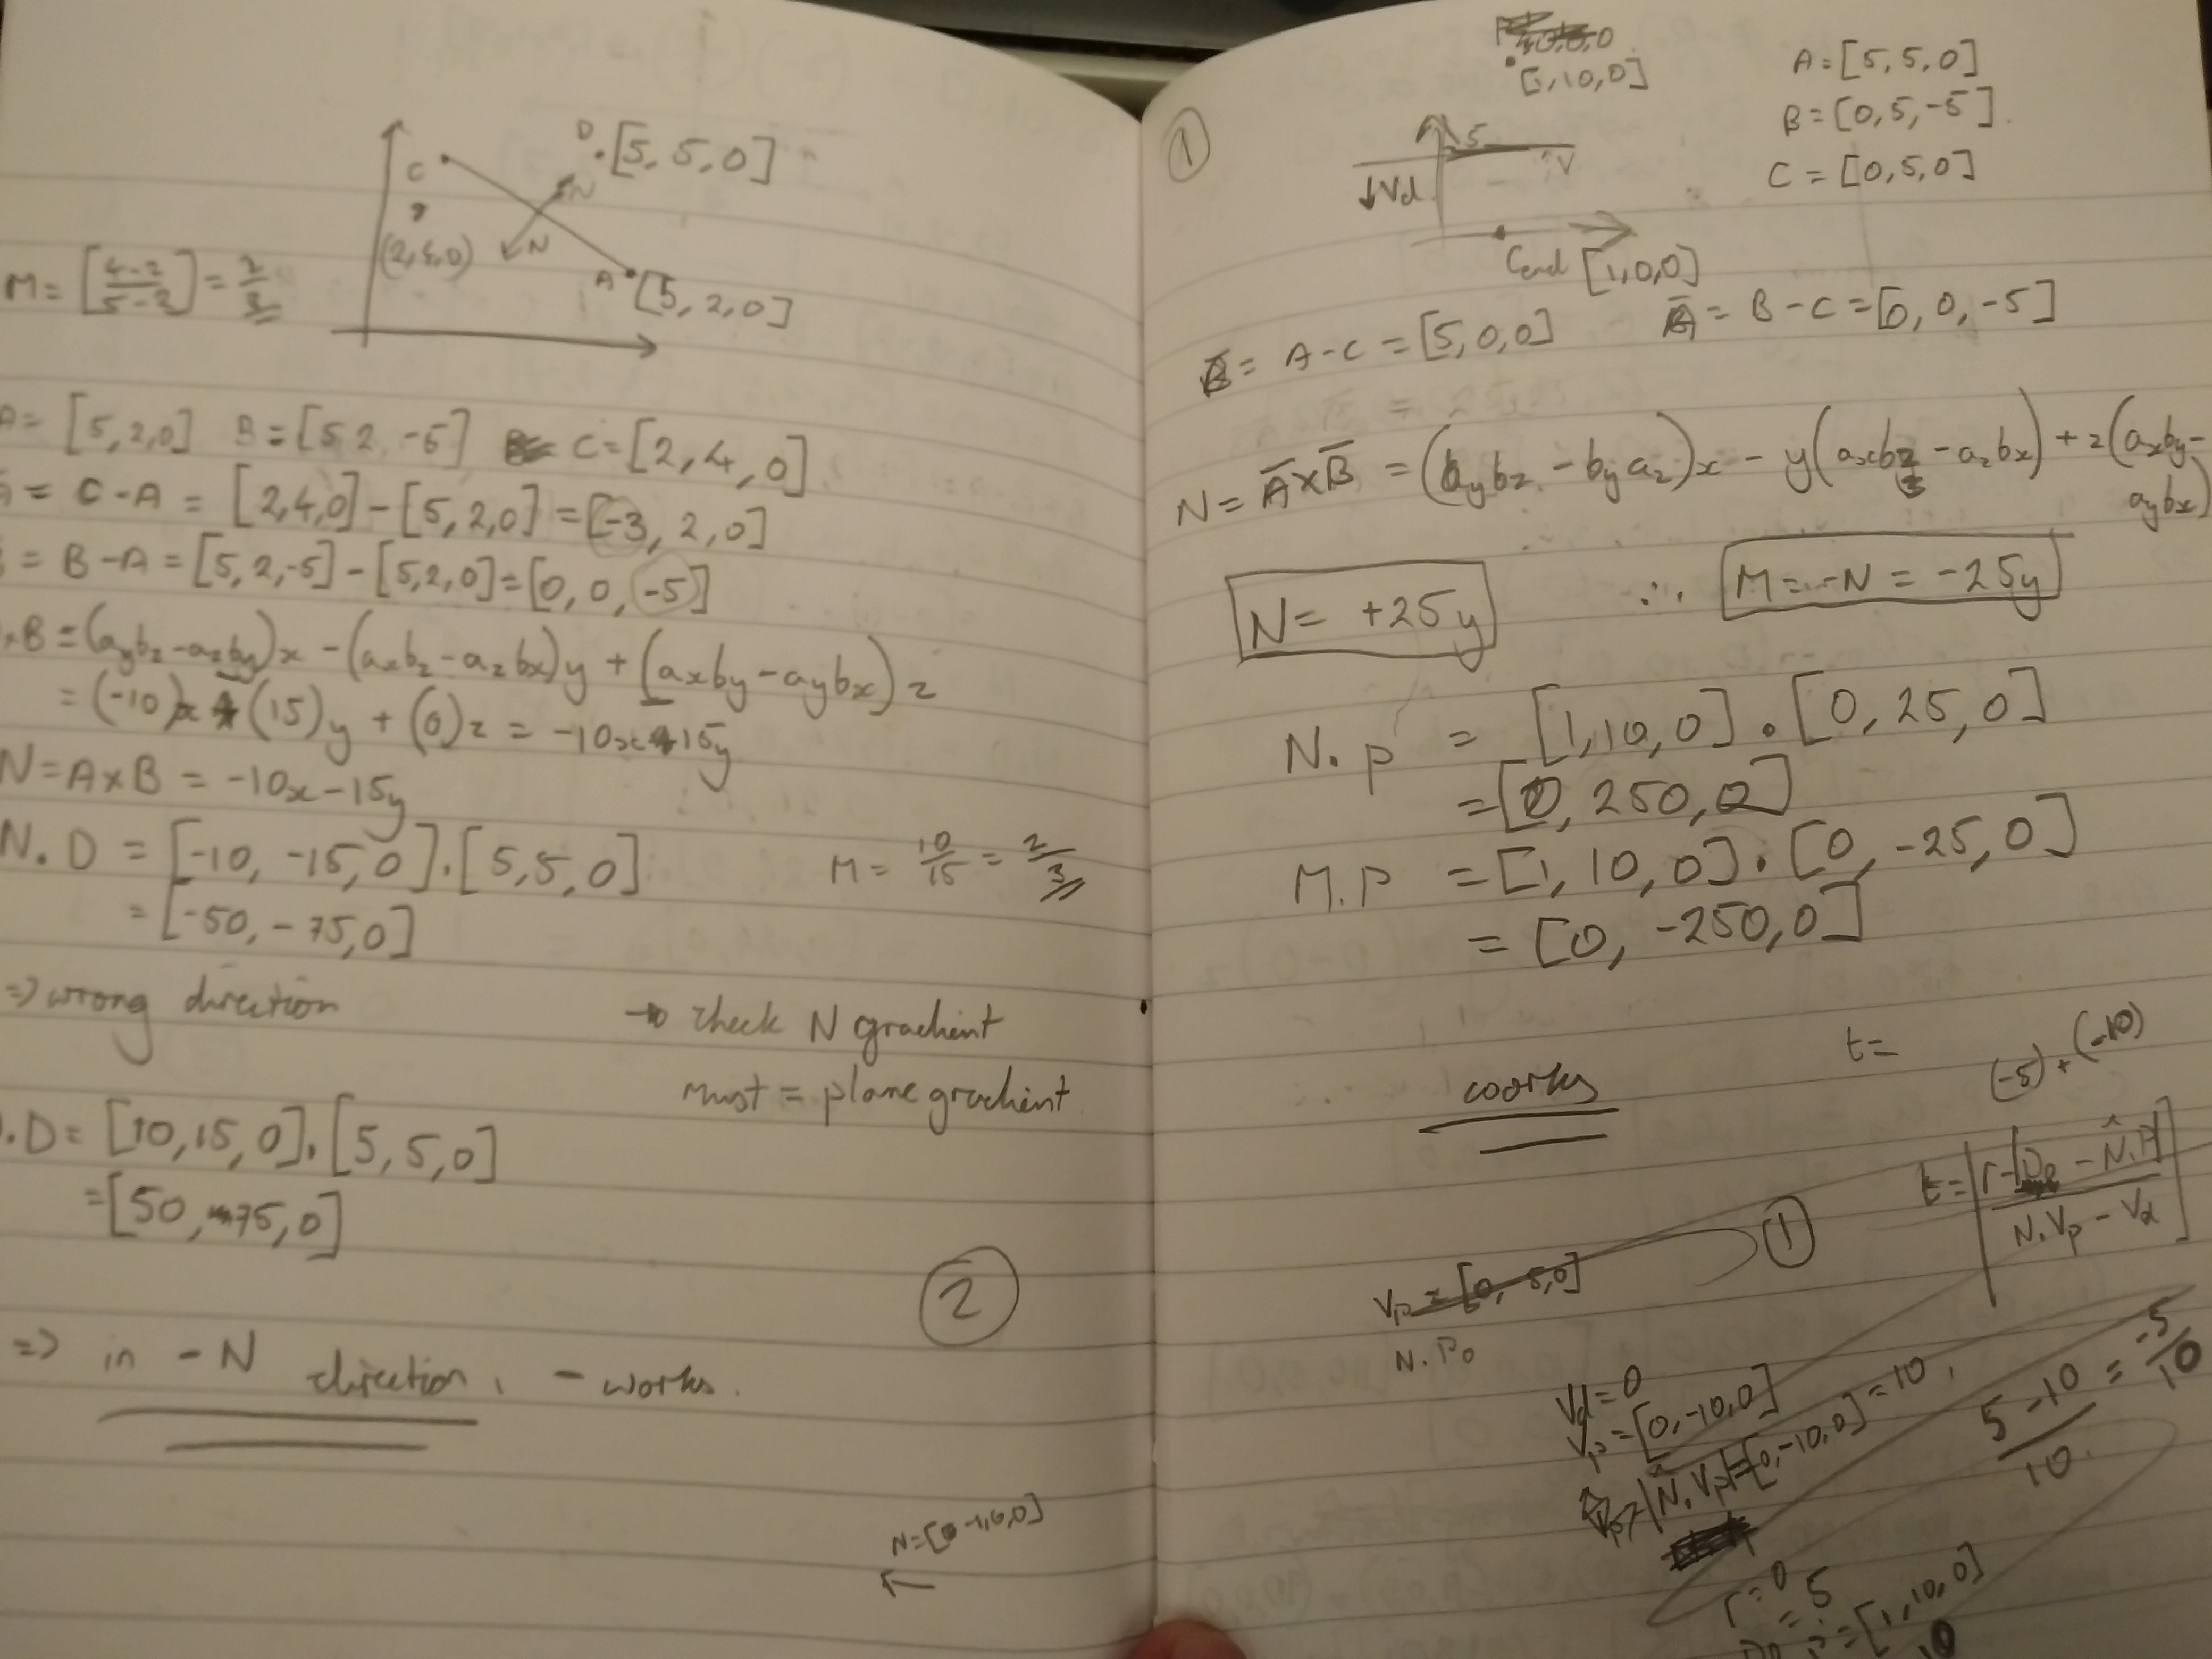 D
.[5, 5, 0]
C
N
(2,4,0)
N
A [5, 2, 0]
M = [4-2/5-2] = 2/3
A= [5,2,0] B=[5 2 -5] C=[2,4,0]
= C-A = [2,4,0]-[5,2,0]=[-3,2,0]
= B-A = [5,2,-5]-[5,2,0]=[0,0,-5]
×B = (aybz-azby)x - (axbz-azbx)y + (axby-aybx)z
= (-10)x (15)y + (0)z = -10x 15y
N=A×B = -10x-15y
N.D = [-10,-15,0].[5,5,0]
M = 10/15 = 2/3
= [-50,-75,0]
=> wrong direction
→ check N gradient
must = plane gradient
.D= [10,15,0].[5,5,0]
=[50, 75,0]
2
=> in -N direction, - works.
N=[-1,0,0]
1
[1,10,0]
A=[5,5,0]
B=[0,5,-5].
C=[0,5,0]
5
V
↓Vd
Cend [1,0,0]
B= A-C=[5,0,0]
A = B-C=[0,0,-5]
N= A×B = (aybz - byaz)x - y(axbz - azbx) + z(axby-
aybx)
N= +25y
∴ M=-N = -25y
N.P = [1,10,0].[0,25,0]
=[0,250,0]
M.P =[1,10,0].[0,-25,0]
= [0,-250,0]
works
t=
(-5)+(-10)
N.Vp - Vd
1
Vp = [0, -5,0]
N.Po
Vd=0
Vp=[0,-10,0]
|N.Vp|=[0,-10,0]=10.
5-10/10 = -5/10
r=0
= 5
=[1,10,0]
10